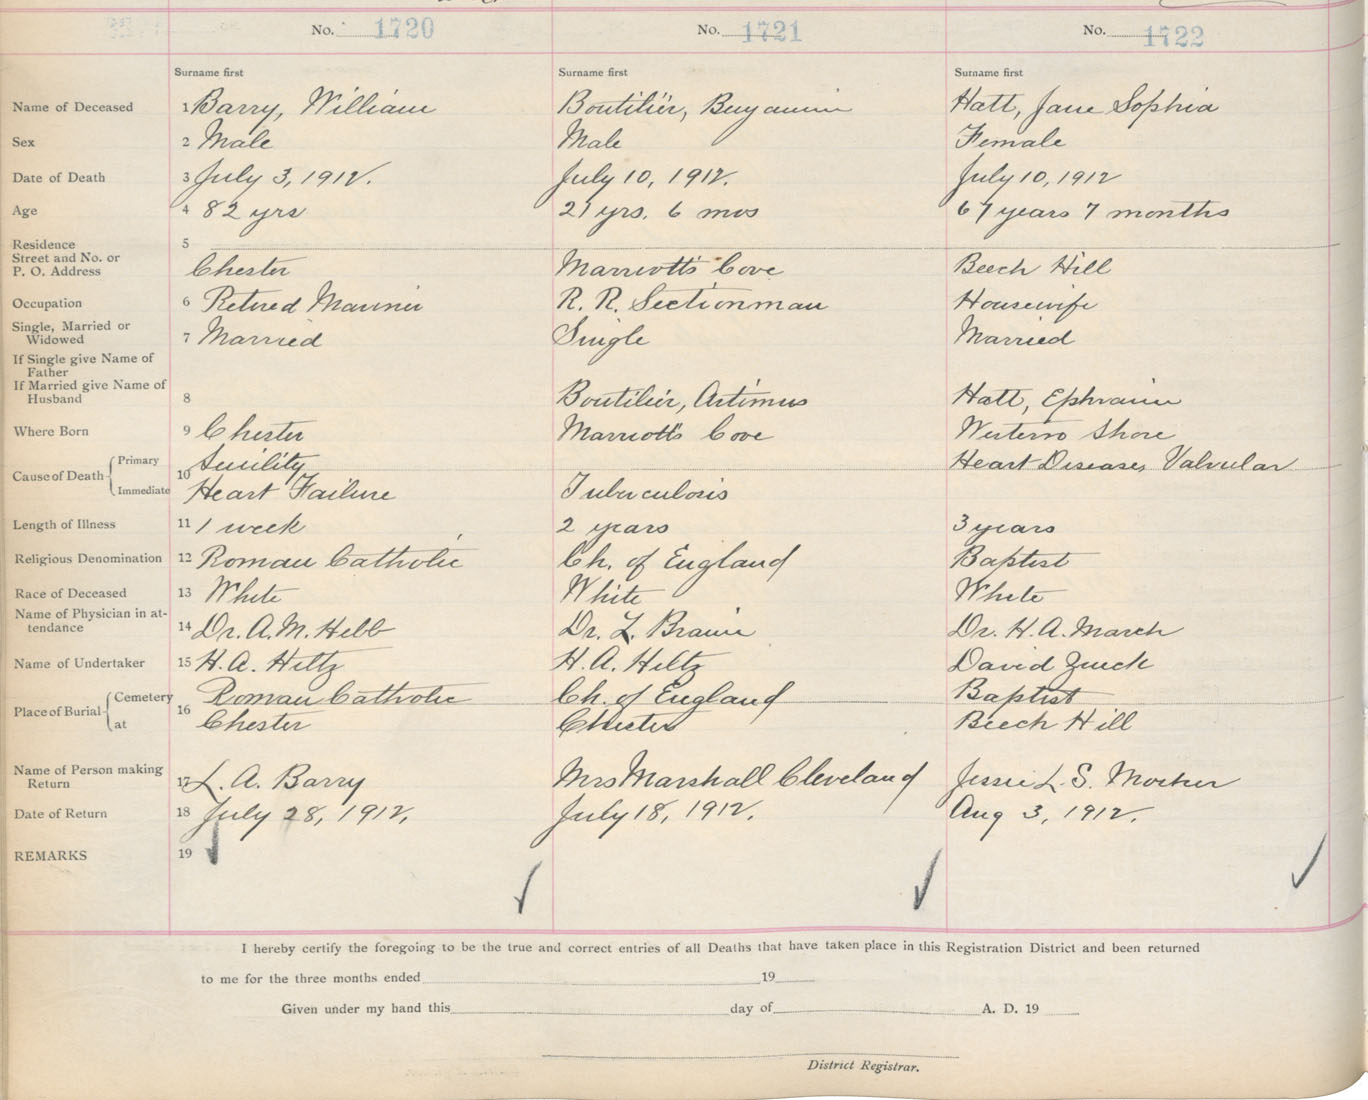 No. 1720 No. 1721 No. 1722
Surname first Surname first Surname first
Name of Deceased 1 Barry, William Boutilier, Benjamin Hatt, Jane Sophia
Sex 2 Male Male Female
Date of Death 3 July 3, 1912. July 10, 1912. July 10, 1912
Age 4 82 yrs 21 yrs. 6 mos 67 years 7 months
Residence 5
Street and No. or
P. O. Address Chester Marriott's Cove Beech Hill
Occupation 6 Retired Mariner R. R. Sectionman Housewife
Single, Married or
Widowed 7 Married Single Married
If Single give Name of
Father
If Married give Name of
Husband 8 Boutilier, Artimus Hatt, Ephraim
Where Born 9 Chester Marriott's Cove Western Shore
Cause of Death Primary 10 Senility Heart Disease, Valvular
Immediate Heart Failure Tuberculosis
Length of Illness 11 1 week 2 years 3 years
Religious Denomination 12 Roman Catholic Ch. of England Baptist
Race of Deceased 13 White White White
Name of Physician in at-
tendance 14 Dr. A. M. Hebb Dr. Z. Dr. H. A. March
Name of Undertaker 15 H. A. Hiltz H. A. Hiltz David Zinck
Place of Burial Cemetery 16 Roman Catholic Ch. of England Baptist
at Chester Chester Beech Hill
Name of Person making
Return 17 L. A. Barry Mrs Marshall Cleveland Jessie L. S.
Date of Return 18 July 28, 1912. July 18, 1912. Aug 3, 1912.
REMARKS 19
I hereby certify the foregoing to be the true and correct entries of all Deaths that have taken place in this Registration District and been returned
to me for the three months ended 19
Given under my hand this day of A. D. 19
District Registrar.